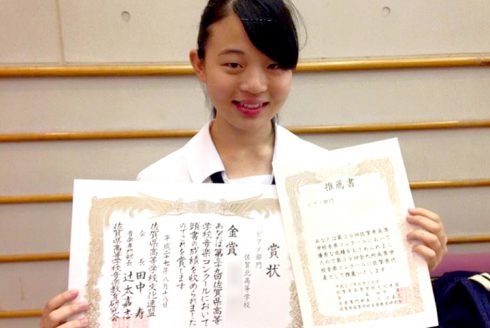 賞状
ピアノ部門
佐賀北高等学校
金賞
あなたは第 回佐賀県高等
学校音楽コンクールにおいて
頭書の成績を収められました
のでこれを賞します
平成二十七年八月十八日
佐賀県高等学校文化連盟
音楽専門部長 田中 寿
佐賀県高等学校音楽教育研究
辻 太嘉
推薦書
ピアノ部門
あなたは第 回佐賀県高等
学校音楽コンクールにおいて
優秀な成績をおさめられました